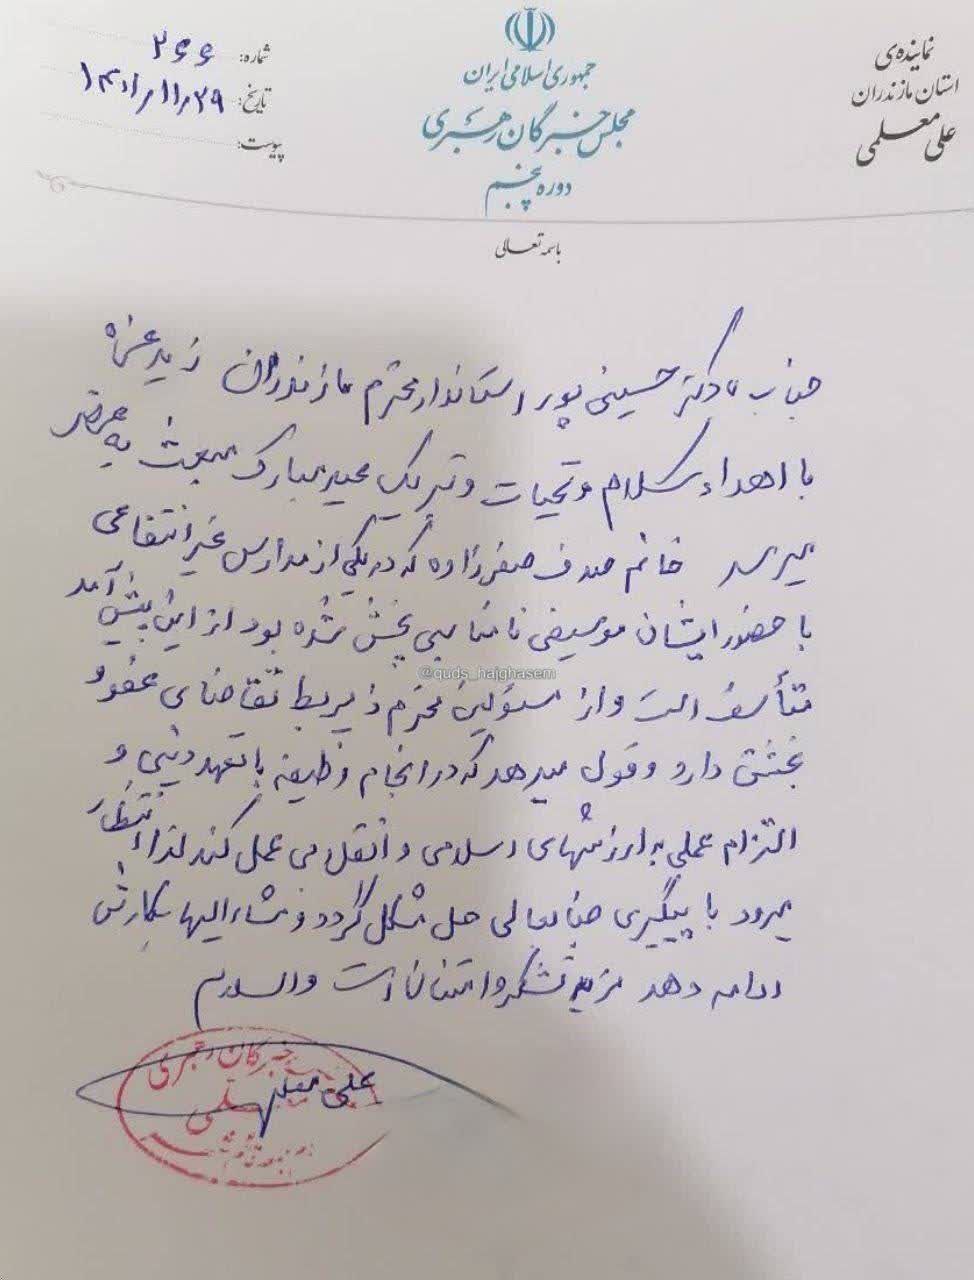 نماینده‌ی
استان مازندران
علی معلمی
جمهوری اسلامی ایران
مجلس خبرگان رهبری
دوره پنجم
شماره: ۲۶۶
تاریخ: ۱۴۰۱/۱۱/۲۹
پیوست:
باسمه تعالی
جناب دکتر حسینی پور استاندار محترم مازندران زید عزه
با اهداء سلام و تحیات و تبریک عید مبارک مبعث به عرض
میرسد خانم صدف صفرزاده که در یکی از مدارس غیر انتفاعی
با حضور ایشان موسیقی نامناسبی پخش شده بود از این پیش آمد
@quds_hajghasem
متأسف است و از مسئولین محترم ذیربط تقاضای عفو و
بخشش دارد و قول میدهد که در انجام وظیفه با تعهد دینی و
التزام عملی به ارزشهای اسلامی و انقلابی عمل کند لذا انتظار
میرود با پیگیری جنابعالی حل مشکل گردد و مشارالیها بکارش
ادامه دهد مزید تشکر و امتنان است والسلام
علی معلمی
خبرگان رهبری